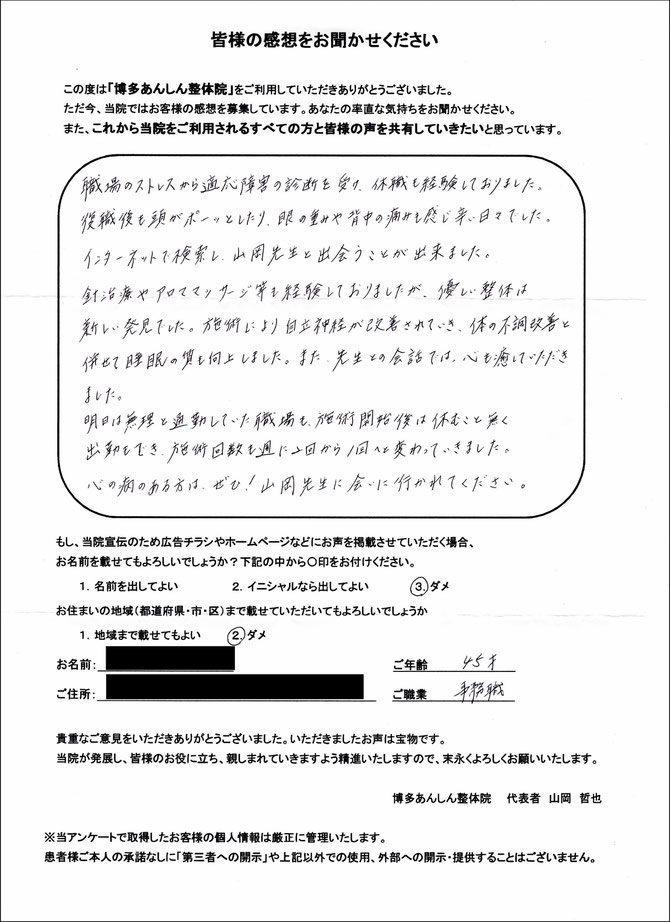 皆様の感想をお聞かせください
この度は「博多あんしん整体院」をご利用していただきありがとうございました。
ただ今、当院ではお客様の感想を募集しています。あなたの率直な気持ちをお聞かせください。
また、これから当院をご利用されるすべての方と皆様の声を共有していきたいと思っています。
職場のストレスから適応障害の診断を受け、休職も経験しておりました。
復職後も頭がボーッとしたり、眼の重みや背中の痛みも感じ辛い日々でした。
インターネットで検索し、山岡先生と出会うことが出来ました。
針治療やアロママッサージ等も経験しておりましたが、優しい整体は
新しい発見でした。施術により自立神経が改善されていき、体の不調改善と
併せて睡眠の質も向上しました。また、先生との会話では、心も癒していただき
ました。
明日は無理と通勤していた職場も、施術開始後は休むこと無く
出勤もでき、施術回数も週に2回から1回へと変わっていきました。
心の病のある方は、ぜひ！山岡先生に会いに行かれてください。
もし、当院宣伝のため広告チラシやホームページなどにお声を掲載させていただく場合、
お名前を載せてもよろしいでしょうか？下記の中から〇印をお付けください。
1. 名前を出してよい 2. イニシャルなら出してよい 3. ダメ
お住まいの地域(都道府県・市・区)まで載せていただいてもよろしいでしょうか
1. 地域まで載せてもよい 2. ダメ
お名前： ご年齢 45才
ご住所： ご職業 事務職
貴重なご意見をいただきありがとうございました。いただきましたお声は宝物です。
当院が発展し、皆様のお役に立ち、親しまれていきますよう精進いたしますので、末永くよろしくお願いいたします。
博多あんしん整体院 代表者 山岡 哲也
※当アンケートで取得したお客様の個人情報は厳正に管理いたします。
患者様ご本人の承諾なしに「第三者への開示」や上記以外での使用、外部への開示・提供することはございません。